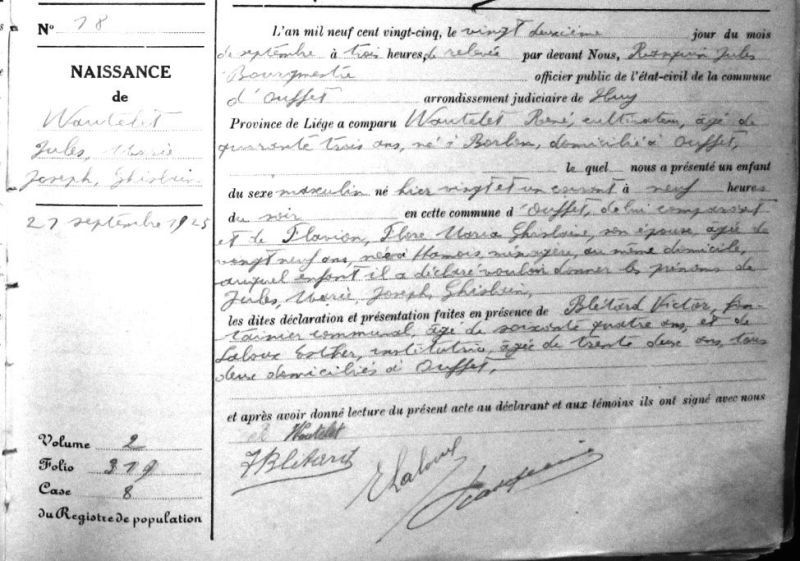 N° 18
NAISSANCE
de
Wautelet
Jules, Marie
Joseph, Ghislain
21 septembre 1925
Volume 2
Folio 319
Case 8
du Registre de population
L'an mil neuf cent vingt-cinq, le vingt deuxième jour du mois
de septembre à trois heures, de relevée par devant Nous, Jules
Bourgmestre officier public de l'état-civil de la commune
d'Ouffet arrondissement judiciaire de Huy
Province de Liége a comparu Wautelet René, cultivateur, âgé de
quarante trois ans, né à Borlon, domicilié à Ouffet,
le quel nous a présenté un enfant
du sexe masculin né hier vingt et un courant à neuf heures
du soir en cette commune d'Ouffet, de lui comparant
et de Flavion, Flore Maria Ghislaine, son épouse, âgée de
vingt neuf ans, née à Hamois, ménagère, au même domicile,
auquel enfant il a déclaré vouloir donner les prénoms de
Jules, Marie, Joseph, Ghislain,
les dites déclaration et présentation faites en présence de Blétard Victor, fon-
tainier communal, âgé de soixante quatre ans, et de
Laloux Esther, institutrice, âgée de trente deux ans, tous
deux domiciliés à Ouffet,
et après avoir donné lecture du présent acte au déclarant et aux témoins ils ont signé avec nous
Wautelet
Blétard
E Laloux